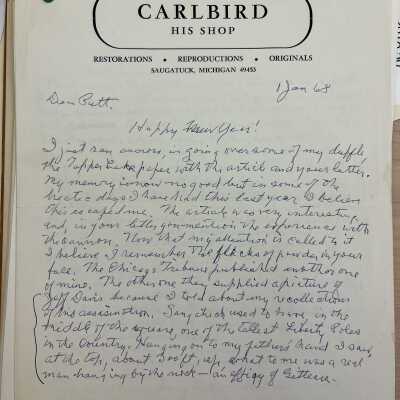 CARLBIRD
HIS SHOP
RESTORATIONS • REPRODUCTIONS • ORIGINALS
SAUGATUCK, MICHIGAN 49453
1 Jan 68
Dear
Happy New Year!
I just ran across, in going over some of my duffle
the Tupper Lake paper with the article and your letter.
My memory is now no good but in some of the
hectic days I have had this last year I believe
this escaped me. The article was very interesting
and, in your letter, you mention the experience with
the cannon. Now that my attention is called to it
I believe I remember the flecks of powder in your
face. The Chicago Tribune published another one
of mine. The other one they supplied a picture of
Jeff Davis because I told about my recollections
of his assassination. used to have, in the
middle of the square, one of the tallest Liberty Poles
in the Country. Hanging on to my father's hand I saw,
at the top, about 200 ft, up, what to me was a real
man hanging by the neck — an effigy of Guiteau.